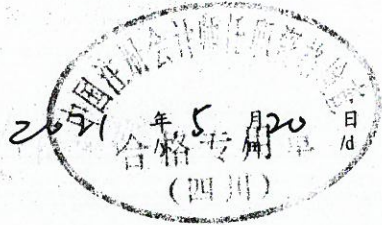 中国注册会计师任职资格检查
2021 年 5 月 20 日
/m /d
合格专用章
（四川）